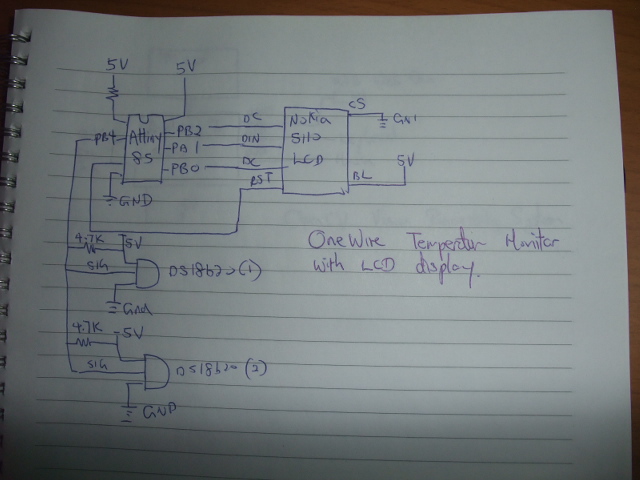 5V 5V
PB4 Attiny 85 PB2 DC Nokia 5110 LCD CS GND
PB1 DIN
PB0 DC BL 5V
RST
GND
4.7K 5V
SIG DS18b20 (1)
GND
4.7K 5V
SIG DS18b20 (2)
GND
OneWire Temperatur Monitor
with LCD display.